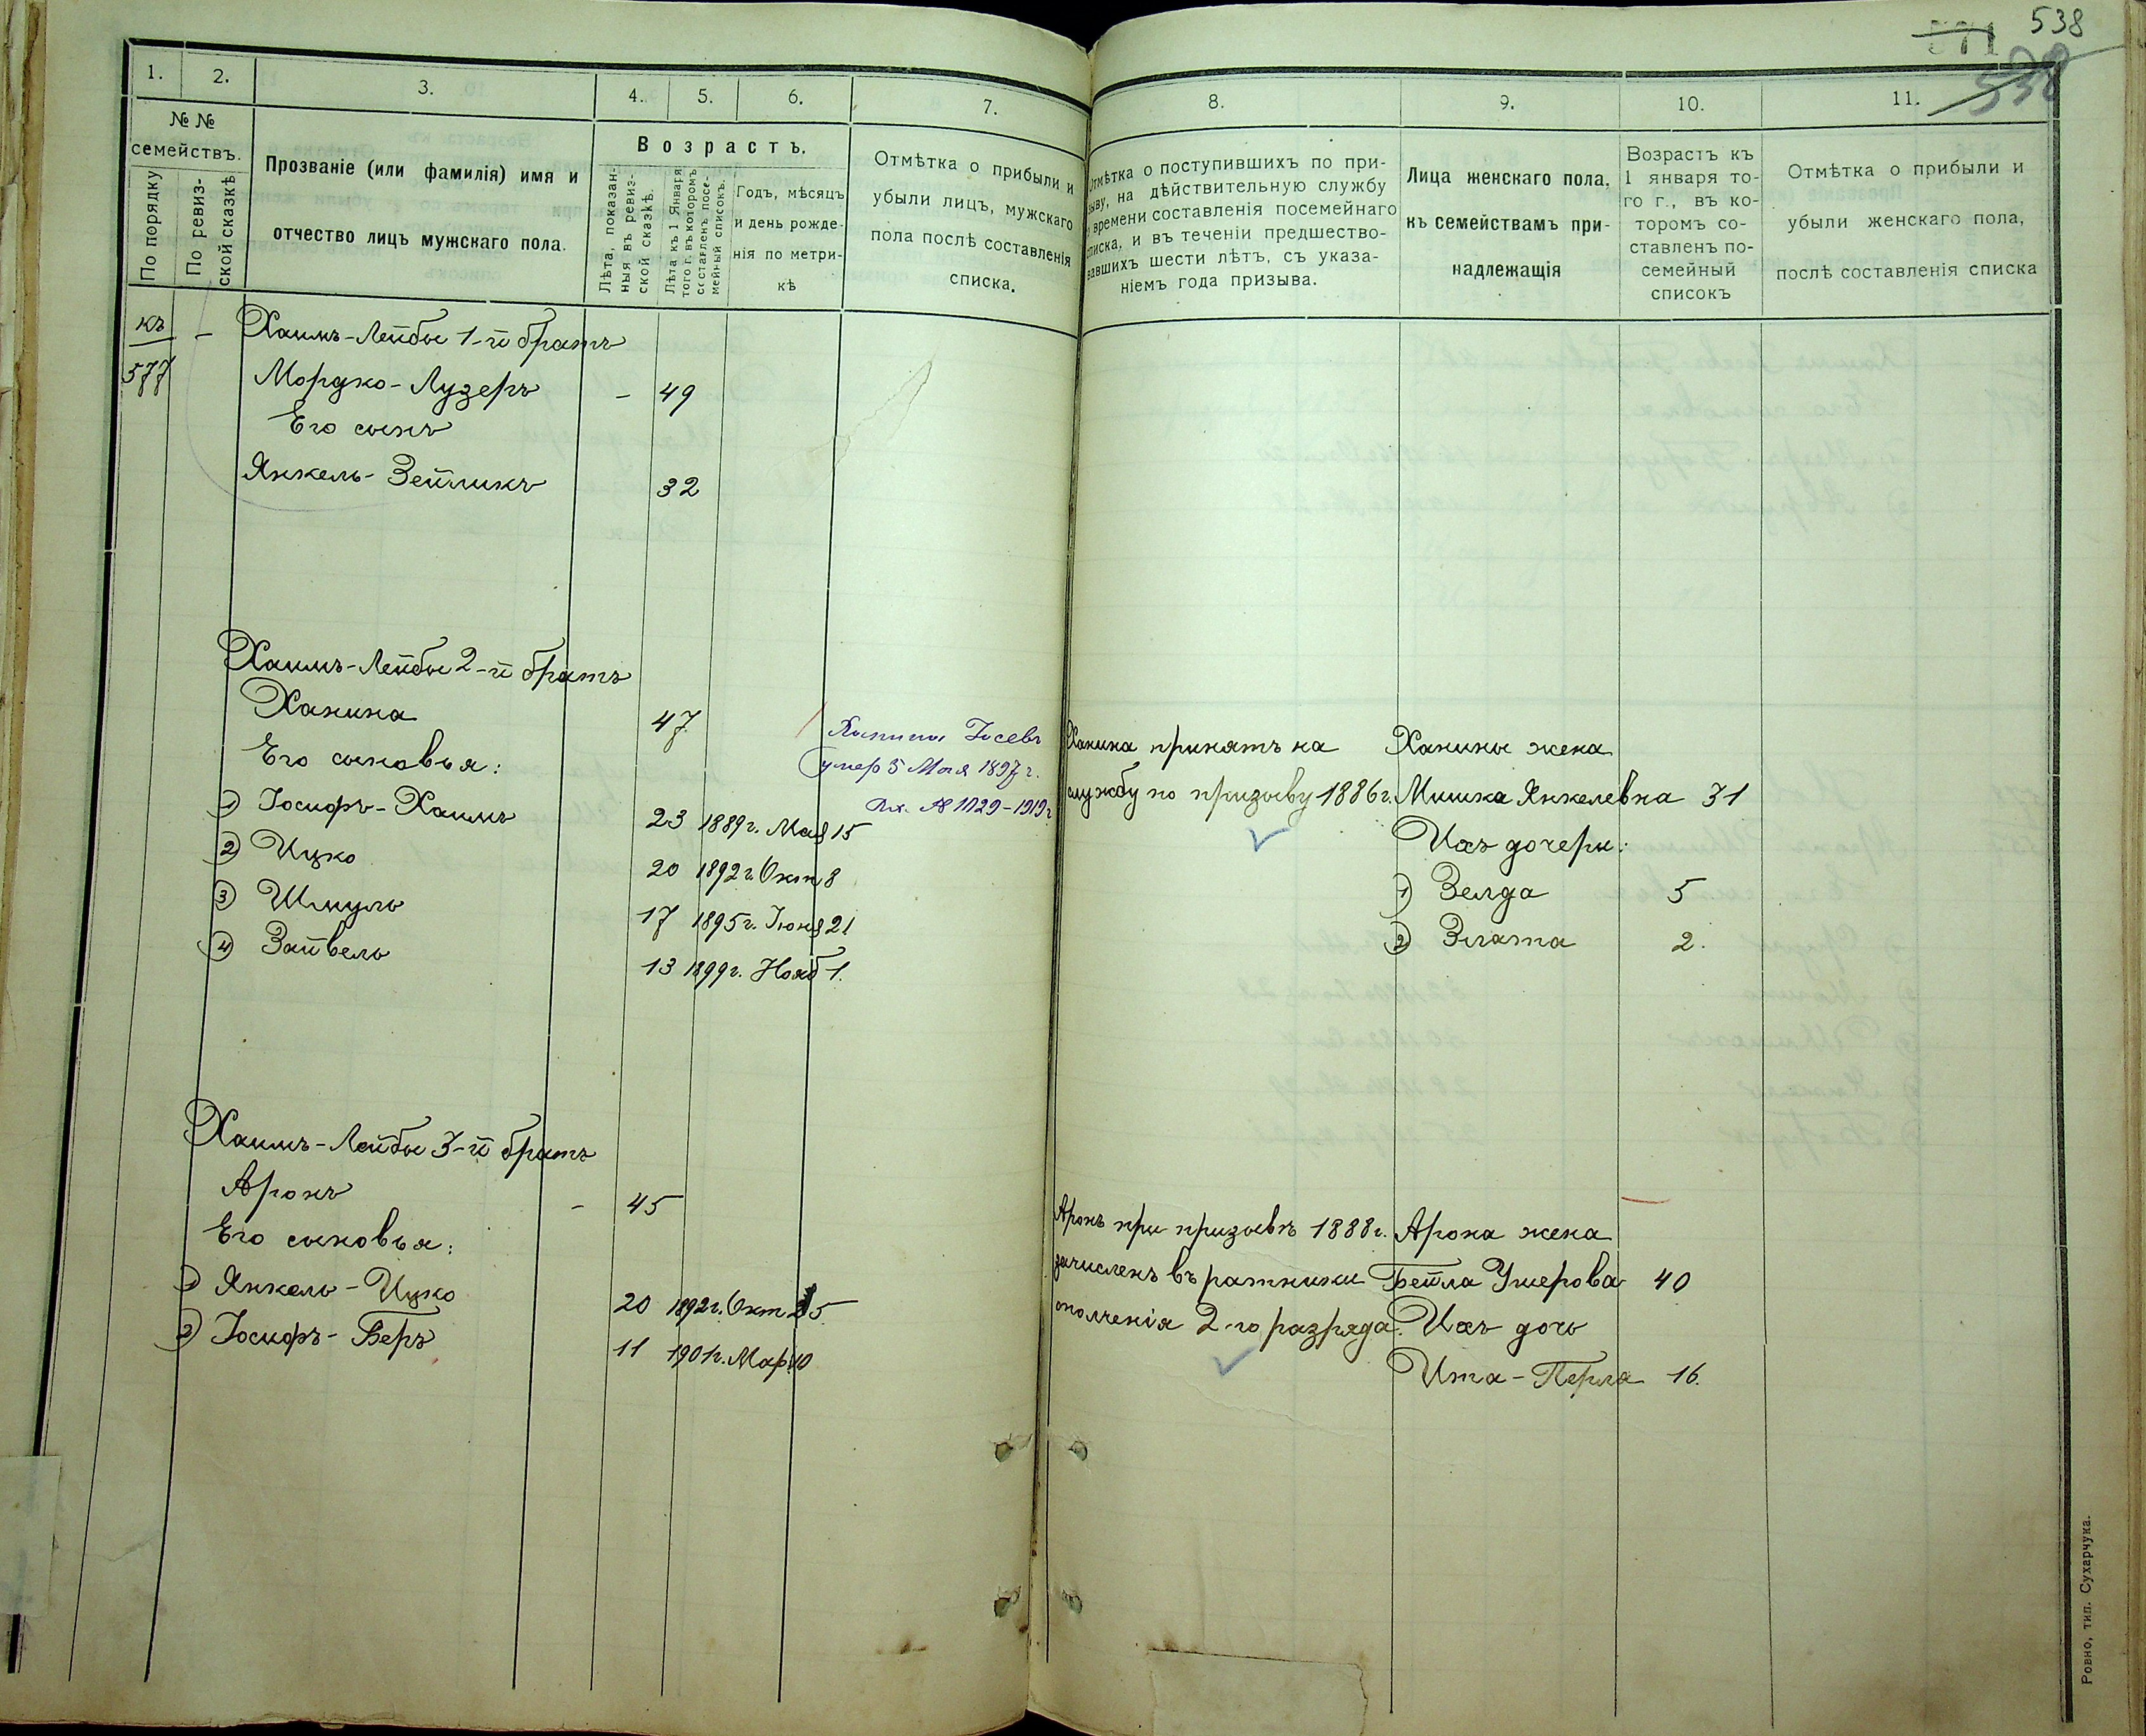 538
571
538
1.
2.
3.
4.
5.
6.
7.
8.
9.
10.
11.
№ №
семействъ.
По порядку
По ревиз-
ской сказкѣ
Прозваніе (или фамилія) имя и
отчество лицъ мужскаго пола.
Возрастъ.
Лѣта, показан-
ныя въ ревиз-
ской сказкѣ.
Лѣта къ 1 Января
того г. въ которомъ
составленъ посе-
мейный списокъ.
Годъ, мѣсяцъ
и день рожде-
нія по метри-
кѣ
Отмѣтка о прибыли и
убыли лицъ, мужскаго
пола послѣ составленія
списка.
Отмѣтка о поступившихъ по при-
зыву, на дѣйствительную службу
времени составленія посемейнаго
списка, и въ теченіи предшество-
вавшихъ шести лѣтъ, съ указа-
ніемъ года призыва.
Лица женскаго пола,
къ семействамъ при-
надлежащія
Возрастъ къ
1 января то-
го г., въ ко-
торомъ со-
ставленъ по-
семейный
списокъ
Отмѣтка о прибыли и
убыли женскаго пола,
послѣ составленія списка
къ
577
– Хаимъ-Лейбы 1-й братъ
Мордко-Лузеръ – 49
Его сынъ
Янкель-Зейликъ 32
Хаимъ-Лейбы 2-й братъ
Ханина 47
Его сыновья:
1) Іосифъ-Хаимъ 23 1889 г. Мая 15
2) Ицко 20 1892 г. Окт 8
3) Шмуль 17 1895 г. Іюня 21
4) Зайвель 13 1899 г. Нояб 1.
Ханина Іосевъ
умер 5 Мая 1897 г.
Вх. № 1029-1919 г
Ханина принятъ на
службу по призыву 1886 г.
Ханины жена
Мишка Янкелевна 31
Ихъ дочери:
1) Зелда 5
2) Злата 2.
Хаимъ-Лейбы 3-й братъ
Аронъ – 45
Его сыновья:
1) Янкель-Ицко 20 1892 г. Окт 5
2) Іосифъ-Беръ 11 1901 г. Мар. 10
Аронъ при призывѣ 1888 г.
зачисленъ въ ратники
ополченія 2-го разряда.
Арона жена
Бейла Умерова 40
Ихъ дочь
Ита-Перля 16.
Ровно, тип. Сухарчука.